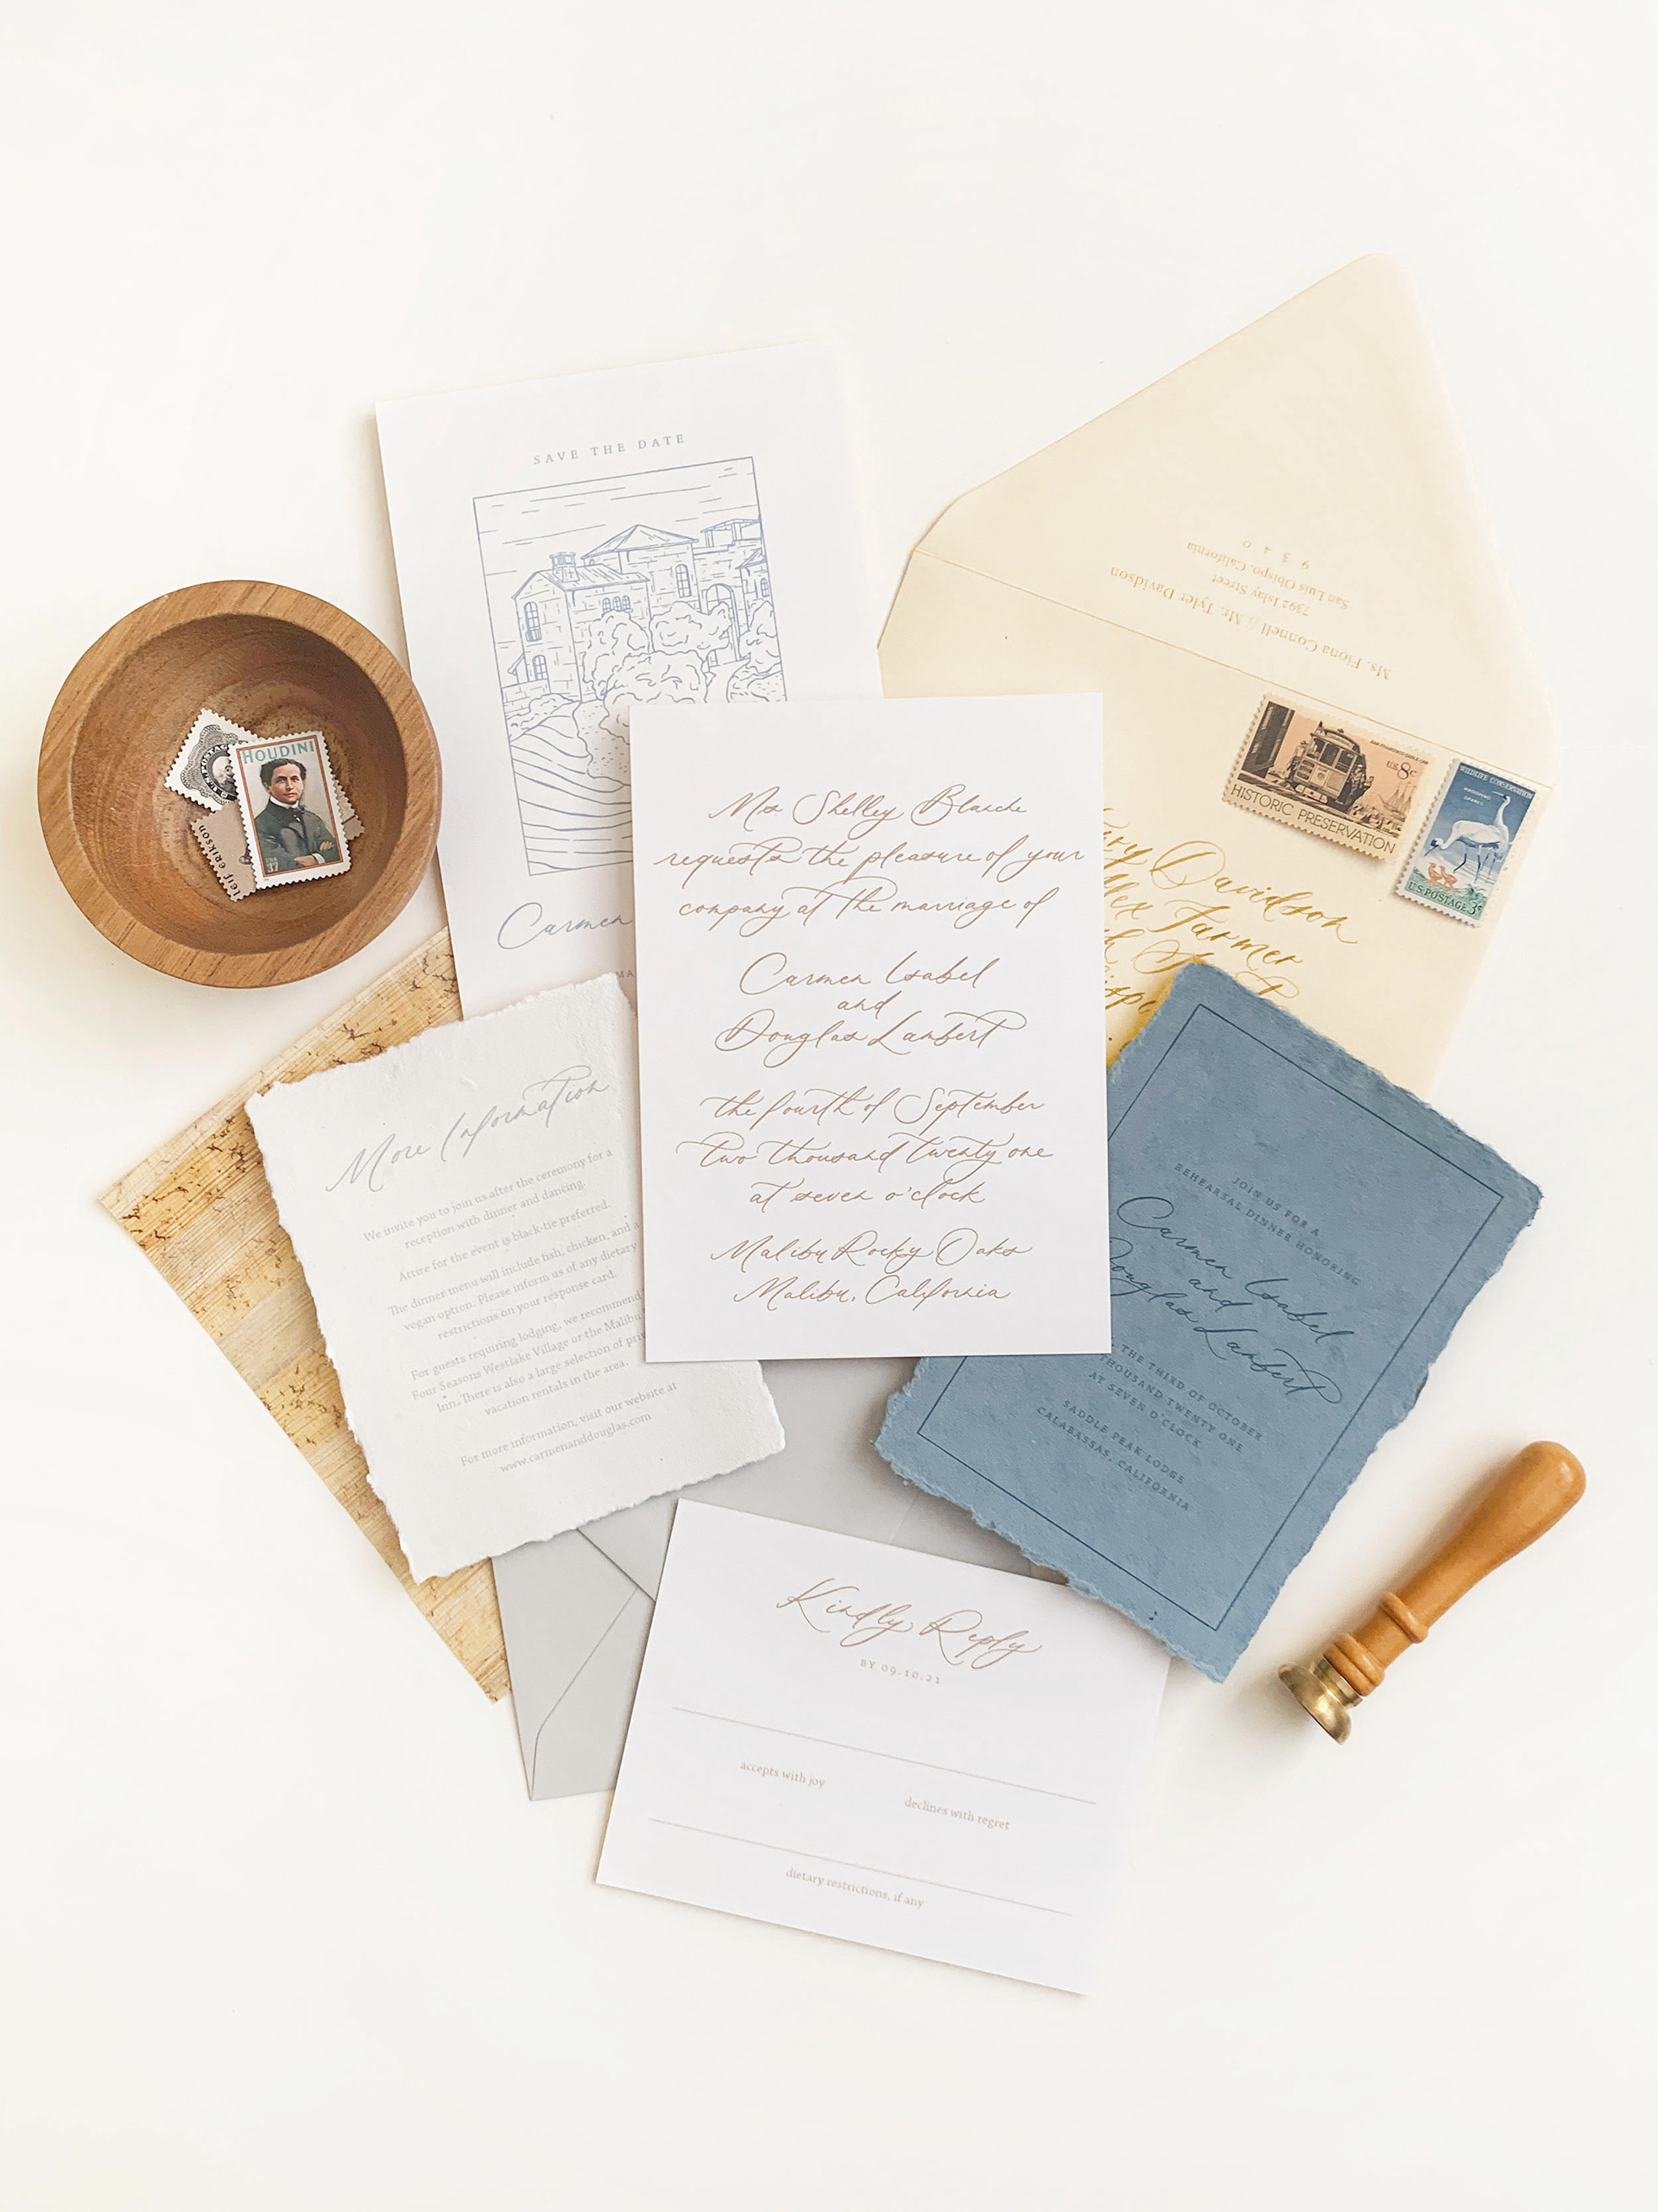 SAVE THE DATE
Carmen
Ms. Fiona Connell // Mr. Tyler Davidson
7392 Islay Street
San Luis Obispo, California
HISTORIC PRESERVATION
U.S. 8c
WILDLIFE CONSERVATION
WHOOPING CRANES
U.S. POSTAGE 3¢
Davidson
Alex Farmer
HOUDINI
USA
37
U.S. POSTAGE
leif erikson
Mrs Shelley Blanche
requests the pleasure of your
company at the marriage of
Carmen Isabel
and
Douglas Lambert
the fourth of September
two thousand twenty one
at seven o'clock
Malibu Rocky Oaks
Malibu, California
More Information
We invite you to join us after the ceremony for a
reception with dinner and dancing.
Attire for the event is black-tie preferred.
The dinner menu will include fish, chicken, and a
vegan option. Please inform us of any dietary
restrictions on your response card.
For guests requiring lodging, we recommend
Four Seasons Westlake Village or the Malibu
Inn. There is also a large selection of
vacation rentals in the area.
For more information, visit our website at
www.carmenanddouglas.com
JOIN US FOR A
REHEARSAL DINNER HONORING
Carmen Isabel
and
Douglas Lambert
THE THIRD OF OCTOBER
THOUSAND TWENTY ONE
AT SEVEN O'CLOCK
SADDLE PEAK LODGE
CALABASSAS, CALIFORNIA
Kindly Reply
BY 09.10.21
accepts with joy
declines with regret
dietary restrictions, if any